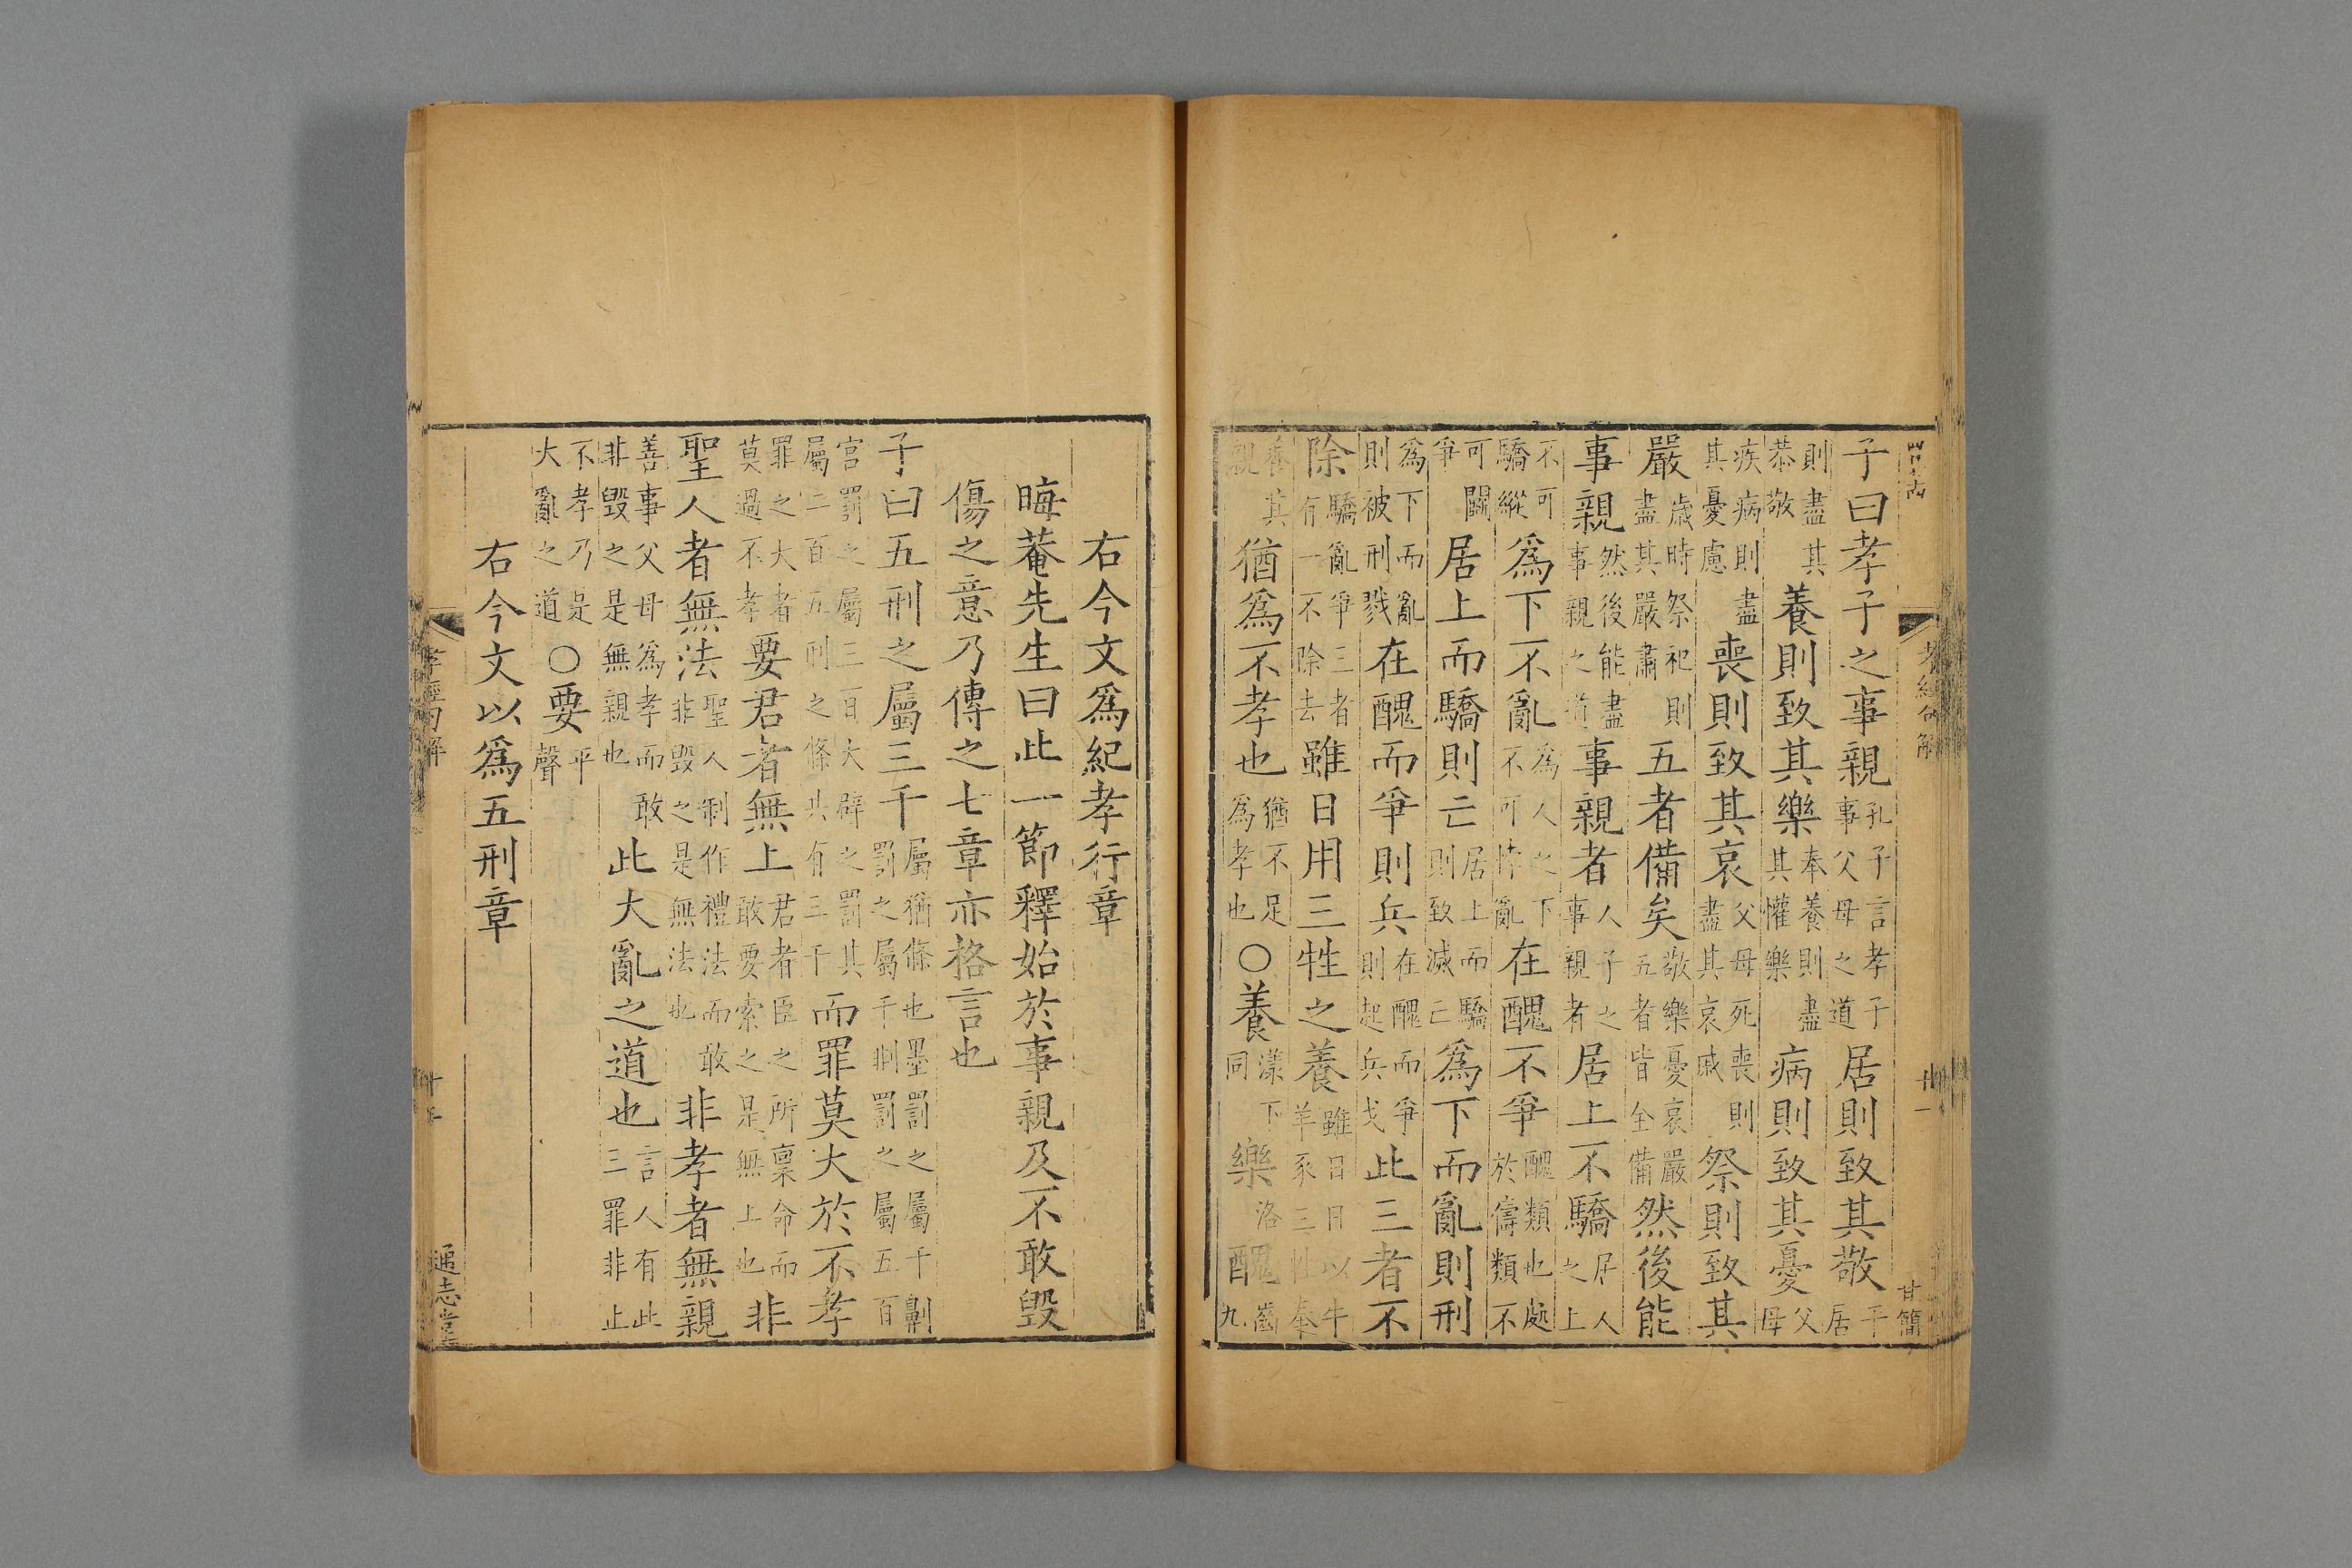 子曰孝子之事親孔子言孝子事父母之道居則致其敬平居
則盡其恭敬養則致其樂奉養則盡其懽樂病則致其憂父母
疾病則盡其憂慮喪則致其哀父母死喪則盡其哀戚祭則致其
嚴歲時祭祀則盡其嚴肅五者備矣敬樂憂哀嚴五者皆全備然後能
事親然後能盡事親之道事親者人子之事親者居上不驕居人之上
不可驕縱爲下不亂爲人之下不可悖亂在醜不爭醜類也處於儕類不
可鬭爭居上而驕則亡居上而驕則致滅亡爲下而亂則刑
爲下而亂則被刑戮在醜而爭則兵在醜而爭則起兵戈此三者不
除驕亂爭三者有一不除去雖日用三牲之養雖日日以牛羊豕三牲奉
養其親猶爲不孝也猶不足爲孝也○養漾下同樂洛醜齒九
孝經句解
廿一
甘簡
右今文爲紀孝行章
晦菴先生曰此一節釋始於事親及不敢毀
傷之意乃傳之七章亦格言也
子曰五刑之屬三千屬猶條也墨罰之屬千劓罰之屬千剕罰之屬五百
宮罰之屬三百大辟之罰其屬二百五刑之條共有三千而罪莫大於不孝
罪之大者莫過不孝要君者無上君者臣之所稟命而敢要索之是無上也非
聖人者無法聖人制作禮法而敢非毀之是無法也非孝者無親
善事父母爲孝而敢非毀之是無親也此大亂之道也言人有此三罪非止
不孝乃是大亂之道○要平聲
右今文以爲五刑章
孝經句解
通志堂